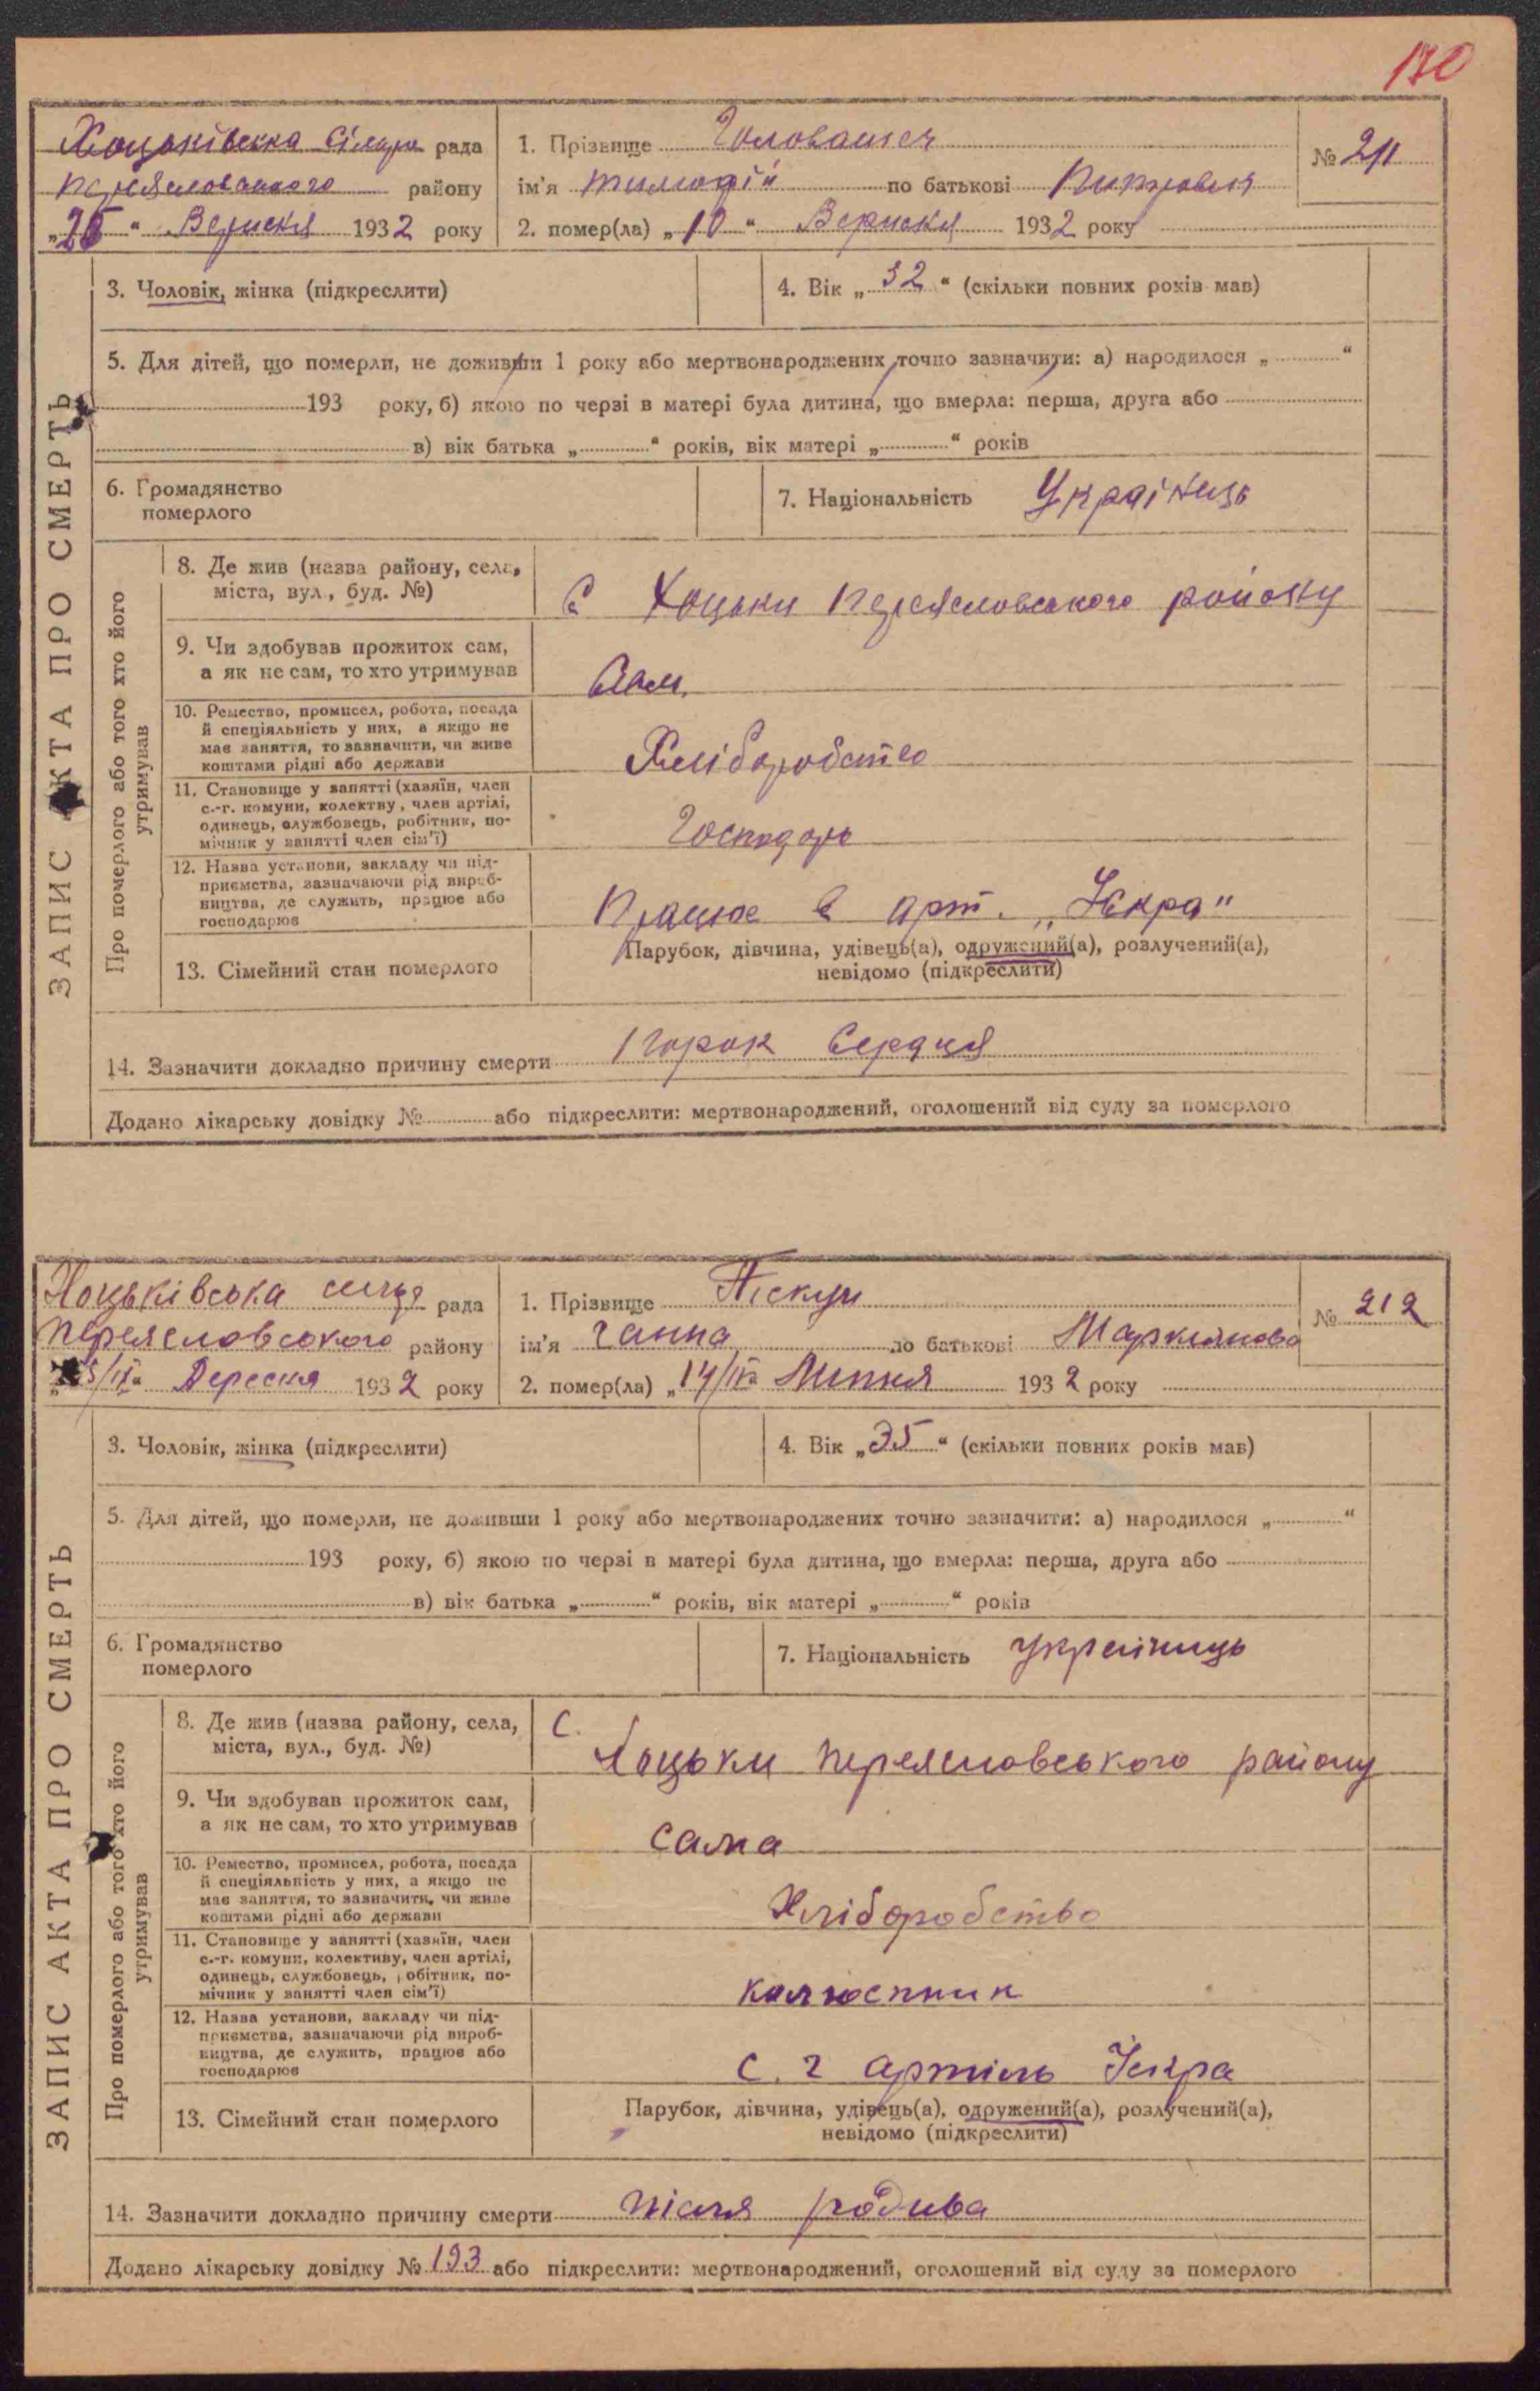 170
Хоцьківська рада
Переяславського району
"25" Вересня 1932 року
1. Прізвище
ім'я Тимофій по батькові
2. помер(ла) „10“ Вересня 1932 року
№ 211
ЗАПИС АКТА ПРО СМЕРТЬ
3. Чоловік, жінка (підкреслити)
4. Вік „32“ (скільки повних років мав)
5. Для дітей, що померли, не доживши 1 року або мертвонароджених точно зазначити: а) народилося „ “
193 року, б) якою по черзі в матері була дитина, що вмерла: перша, друга або
в) вік батька „ “ років, вік матері „ “ років
6. Громадянство
померлого
7. Національність Українець
Про померлого або того хто його
утримував
8. Де жив (назва району, села,
міста, вул., буд. №)
с Хоцьки Переясловського району
9. Чи здобував прожиток сам,
а як не сам, то хто утримував
Сам.
10. Ремество, промисел, робота, посада
й спеціяльність у них, а якщо не
має заняття, то зазначити, чи живе
коштами рідні або держави
Хліборобство
11. Становище у занятті (хазяїн, член
с.-г. комуни, колективу, член артілі,
одинець, службовець, робітник, по-
мічник у занятті член сім'ї)
Господарь
12. Назва установи, закладу чи під-
приємства, зазначаючи рід вироб-
ництва, де служить, працює або
господарює
Працює в арт. „Іскра"
13. Сімейний стан померлого
Парубок, дівчина, удівець(а), одружений(а), розлучений(а),
невідомо (підкреслити)
14. Зазначити докладно причину смерти Порок Сердця
Додано лікарську довідку № або підкреслити: мертвонароджений, оголошений від суду за померлого
Хоцьківська рада
Переясловського району
Вересня 1932 року
1. Прізвище Піскун
ім'я Ганна по батькові Маркіянова
2. помер(ла) „14/ Липня 1932 року
№ 212
ЗАПИС АКТА ПРО СМЕРТЬ
3. Чоловік, жінка (підкреслити)
4. Вік „35“ (скільки повних років мав)
5. Для дітей, що померли, не доживши 1 року або мертвонароджених точно зазначити: а) народилося „ “
193 року, б) якою по черзі в матері була дитина, що вмерла: перша, друга або
в) вік батька „ “ років, вік матері „ “ років
6. Громадянство
померлого
7. Національність
Про померлого або того хто його
утримував
8. Де жив (назва району, села,
міста, вул., буд. №)
с.
Хоцьки Переясловського району
9. Чи здобував прожиток сам,
а як не сам, то хто утримував
сама
10. Ремество, промисел, робота, посада
й спеціяльність у них, а якщо не
має заняття, то зазначити, чи живе
коштами рідні або держави
Хліборобство
11. Становище у занятті (хазяїн, член
с.-г. комуни, колективу, член артілі,
одинець, службовець, робітник, по-
мічник у занятті член сім'ї)
12. Назва установи, закладу чи під-
приємства, зазначаючи рід вироб-
ництва, де служить, працює або
господарює
с. г артіль Іскра
13. Сімейний стан померлого
Парубок, дівчина, удівець(а), одружений(а), розлучений(а),
невідомо (підкреслити)
14. Зазначити докладно причину смерти після родива
Додано лікарську довідку № 193 або підкреслити: мертвонароджений, оголошений від суду за померлого